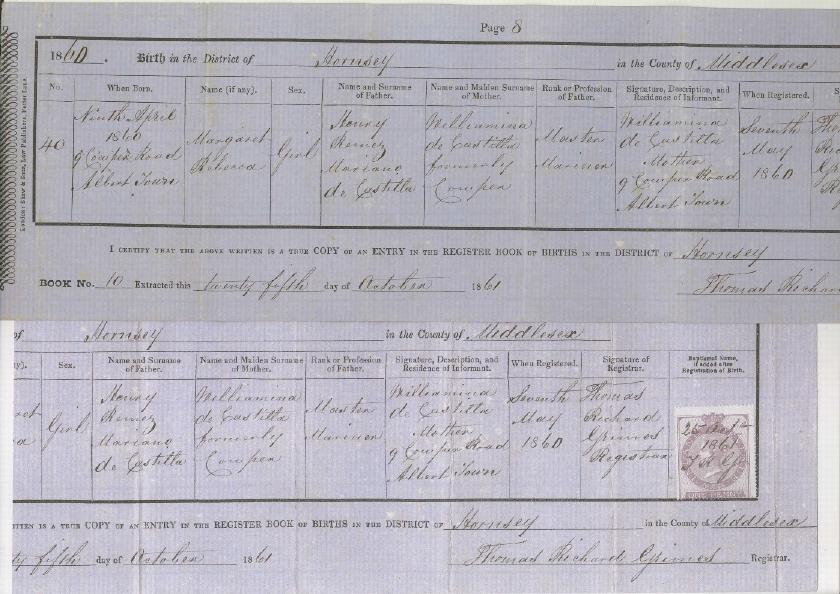 Page 8
1860. Birth in the District of Hornsey in the County of Middlesex
No. When Born. Name (if any). Sex. Name and Surname of Father. Name and Maiden Surname of Mother. Rank or Profession of Father. Signature, Description, and Residence of Informant. When Registered. S
40
Ninth April
1860
9 Cowper Road
Albert Town
Margaret
Rebecca
Girl
Henry
Remez
Mariano
de Castilla
Williamina
de Castilla
formerly
Cowpen
Master
Mariner
Williamina
de Castilla
Mother
9 Cowper Road
Albert Town
Seventh
May
1860
Tho
Ric
Gri
Re
London: Shaw & Sons, Law Publishers, Fetter Lane.
I CERTIFY THAT THE ABOVE WRITTEN IS A TRUE COPY OF AN ENTRY IN THE REGISTER BOOK OF BIRTHS IN THE DISTRICT OF Hornsey
BOOK No. 10 Extracted this twenty fifth day of October 1861
Thomas Richar
of Hornsey in the County of Middlesex
y). Sex. Name and Surname of Father. Name and Maiden Surname of Mother. Rank or Profession of Father. Signature, Description, and Residence of Informant. When Registered. Signature of Registrar. Baptismal Name, if added after Registration of Birth.
ret
a
Girl
Henry
Remez
Mariano
de Castilla
Williamina
de Castilla
formerly
Cowpen
Master
Mariner
Williamina
de Castilla
Mother
9 Cowper Road
Albert Town
Seventh
May
1860
Thomas
Richard
Grimes
Registrar
25
1861
T R G
ITTEN IS A TRUE COPY OF AN ENTRY IN THE REGISTER BOOK OF BIRTHS IN THE DISTRICT OF Hornsey in the County of Middlesex
ty fifth day of October 1861 Thomas Richard Grimes Registrar.